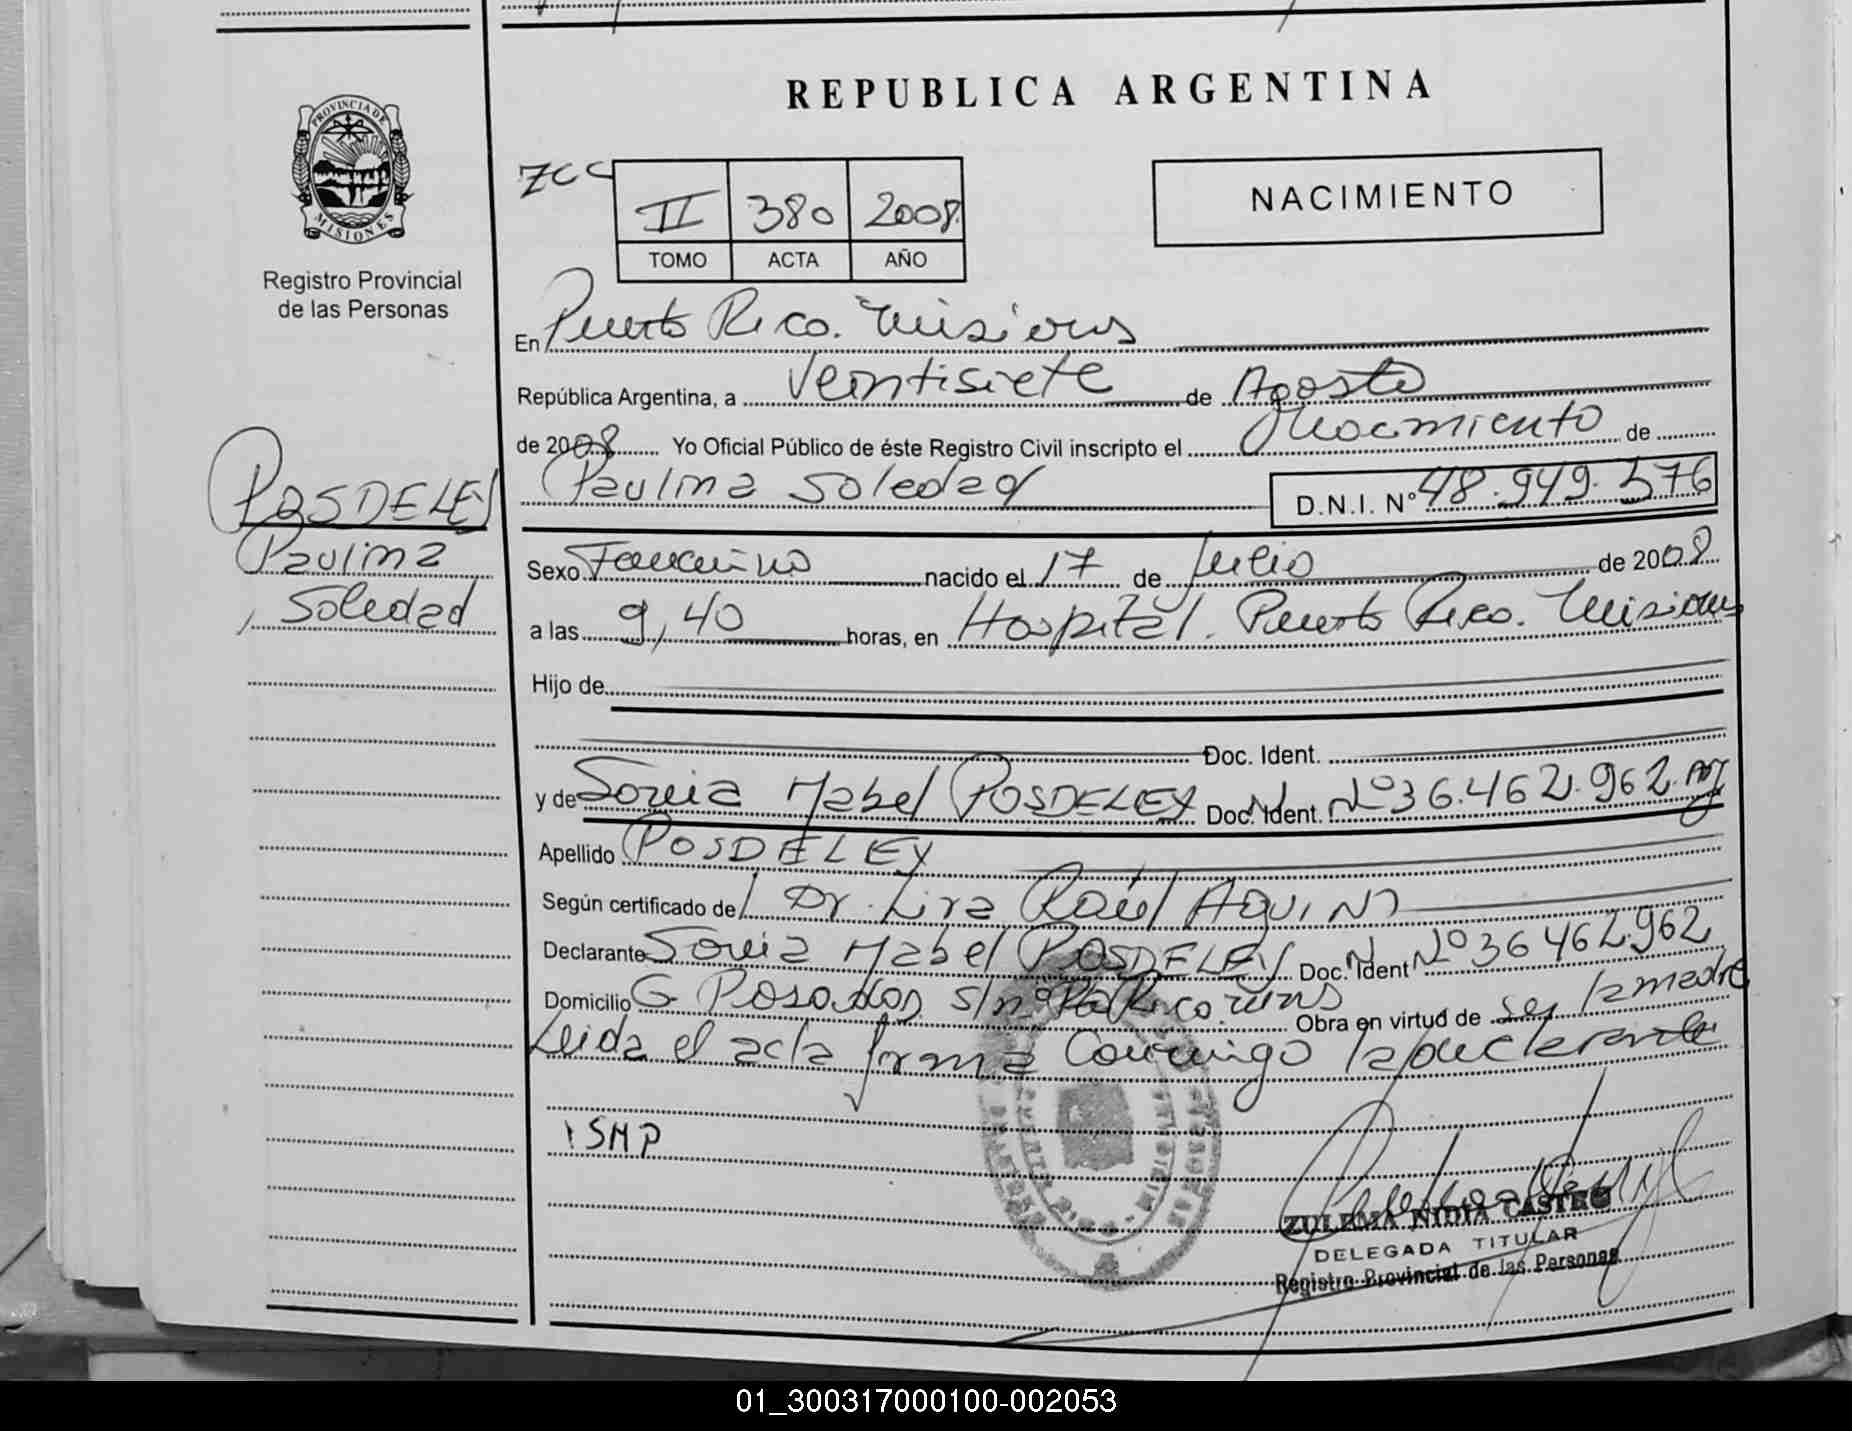 REPUBLICA ARGENTINA
PROVINCIA DE
MISIONES
Registro Provincial
de las Personas
ZCC
II 380 2008
TOMO ACTA AÑO
NACIMIENTO
En Puerto Rico. Misiones
República Argentina, a Veintisiete de Agosto
de 2008 Yo Oficial Público de éste Registro Civil inscripto el Nacimiento de
Paulina Soledad D.N.I. Nº 48.949.576
POSDELEY
Paulina
Soledad
Sexo Femenino nacido el 17 de Julio de 2008
a las 9,40 horas, en Hospital. Puerto Rico. Misiones
Hijo de
Doc. Ident.
y de Sonia Mabel POSDELEY Doc. Ident. Nº 36.462.962
Apellido POSDELEY
Según certificado de Dr. Lira Raúl AQUINO
Declarante Sonia Mabel POSDELEY Doc. Ident Nº 36 462.962
Domicilio G Posadas s/nº Pto Rico Obra en virtud de ser la madre
Leida el acta firma Conmigo la declarante
SMP
ZULEMA NIDIA CASTRO
DELEGADA TITULAR
Registro Provincial de las Personas
01_300317000100-002053